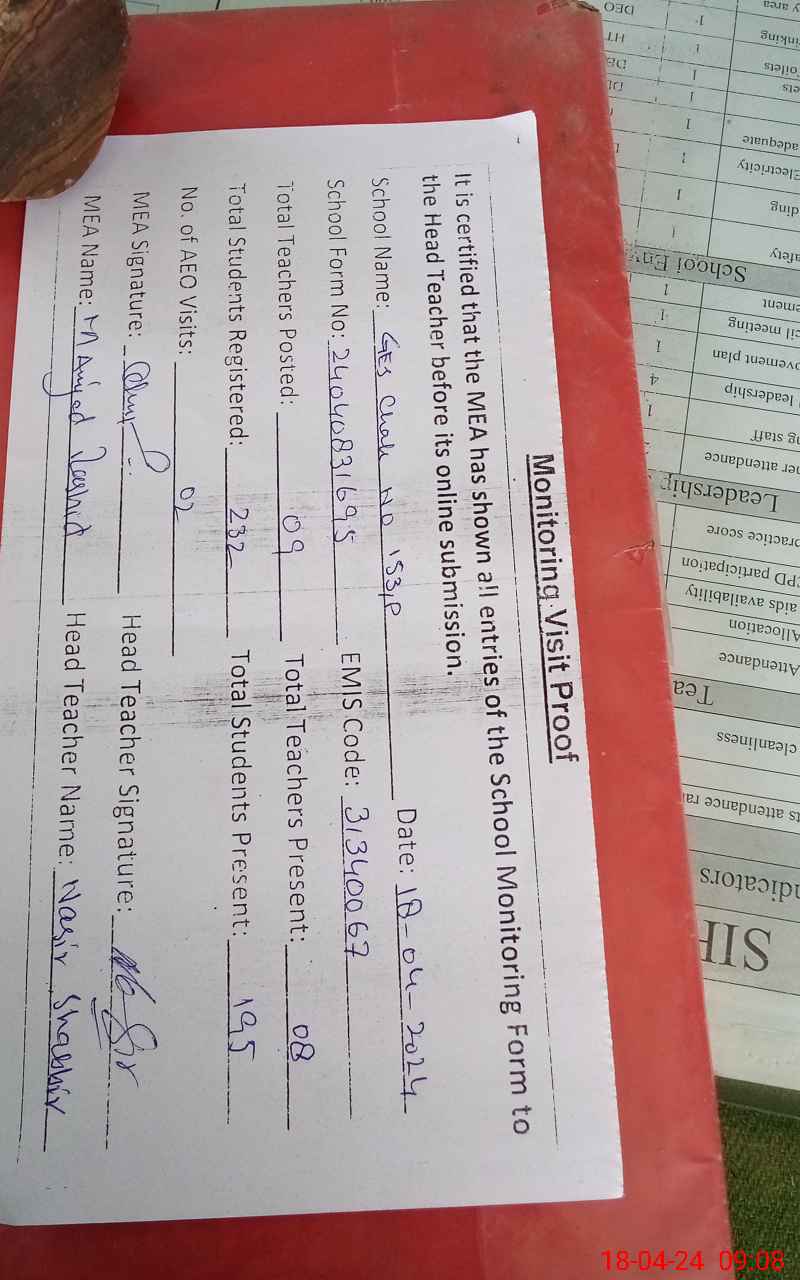 Monitoring Visit Proof
It is certified that the MEA has shown all entries of the School Monitoring Form to
the Head Teacher before its online submission.
School Name: GES Chak No 153,P Date: 18-04-2024
School Form No: 24040831695 EMIS Code: 31340067
Total Teachers Posted: 09 Total Teachers Present: 08
Total Students Registered: 232 Total Students Present: 195
No. of AEO Visits: 02
MEA Signature: Head Teacher Signature:
MEA Name: M Amjad Rashid Head Teacher Name: Nasir Shabbir
SIF
ndicators
ts attendance ra
cleanliness
Tea
Attendance
Allocation
aids availability
CPD participation
practice score
Leadership
er attendance
ng staff
leadership 4
ovement plan 1
cil meeting 1
ement 1
School Env
afety 1
ding 1
Electricity 1
adequate 1
ets 1
oilets 1
inking 1 HT
y area 1 DEO
18-04-24 09:08